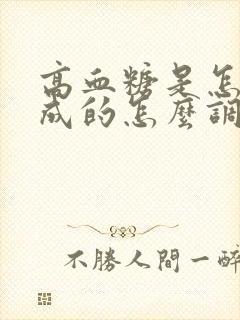 高血糖是怎
成的怎麼調
不勝人間一醉